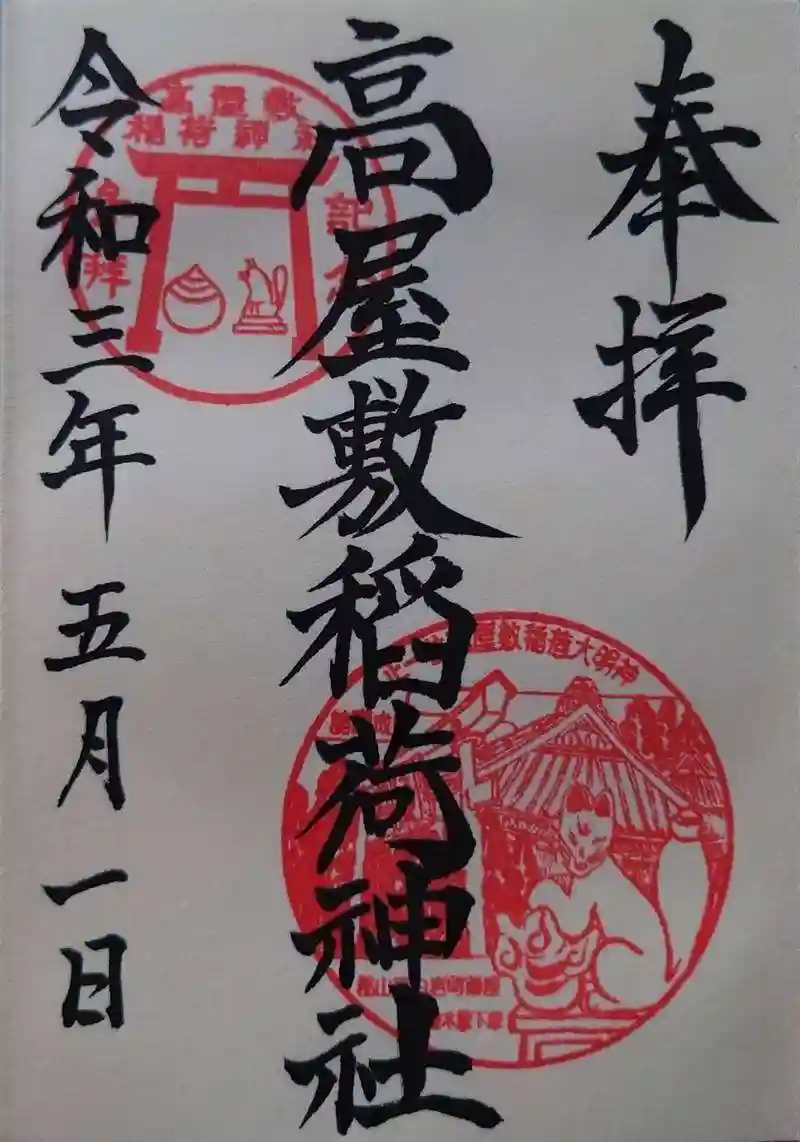 奉拝
高屋敷稲荷神社
令和三年 五月一日
高屋敷
稲荷神社
記念
参拝
屋敷稲荷大明神